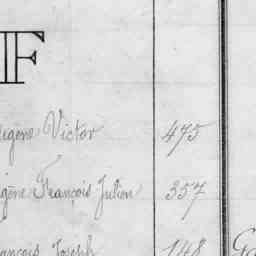 IF
ugène Victor 475
gène François Julien 357
ançois Joseph 148
Ga